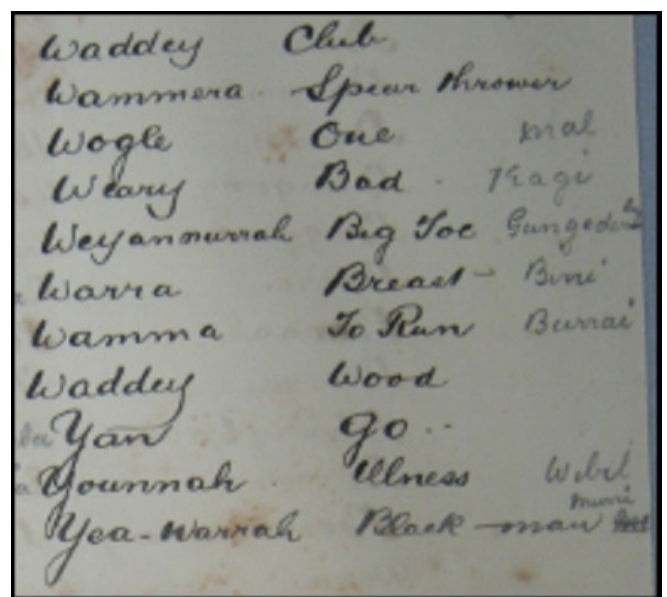 Waddey Club
Wammera Spear thrower
Wogle One mal
Weary Bad - Kagi
Weyannurrah Big Toe
Warra Breast - Bini
Wamma To Run Burrai
Waddey Wood
Yan Go ..
Younnah Illness Wibil
murri
Yea-warrah Black-man